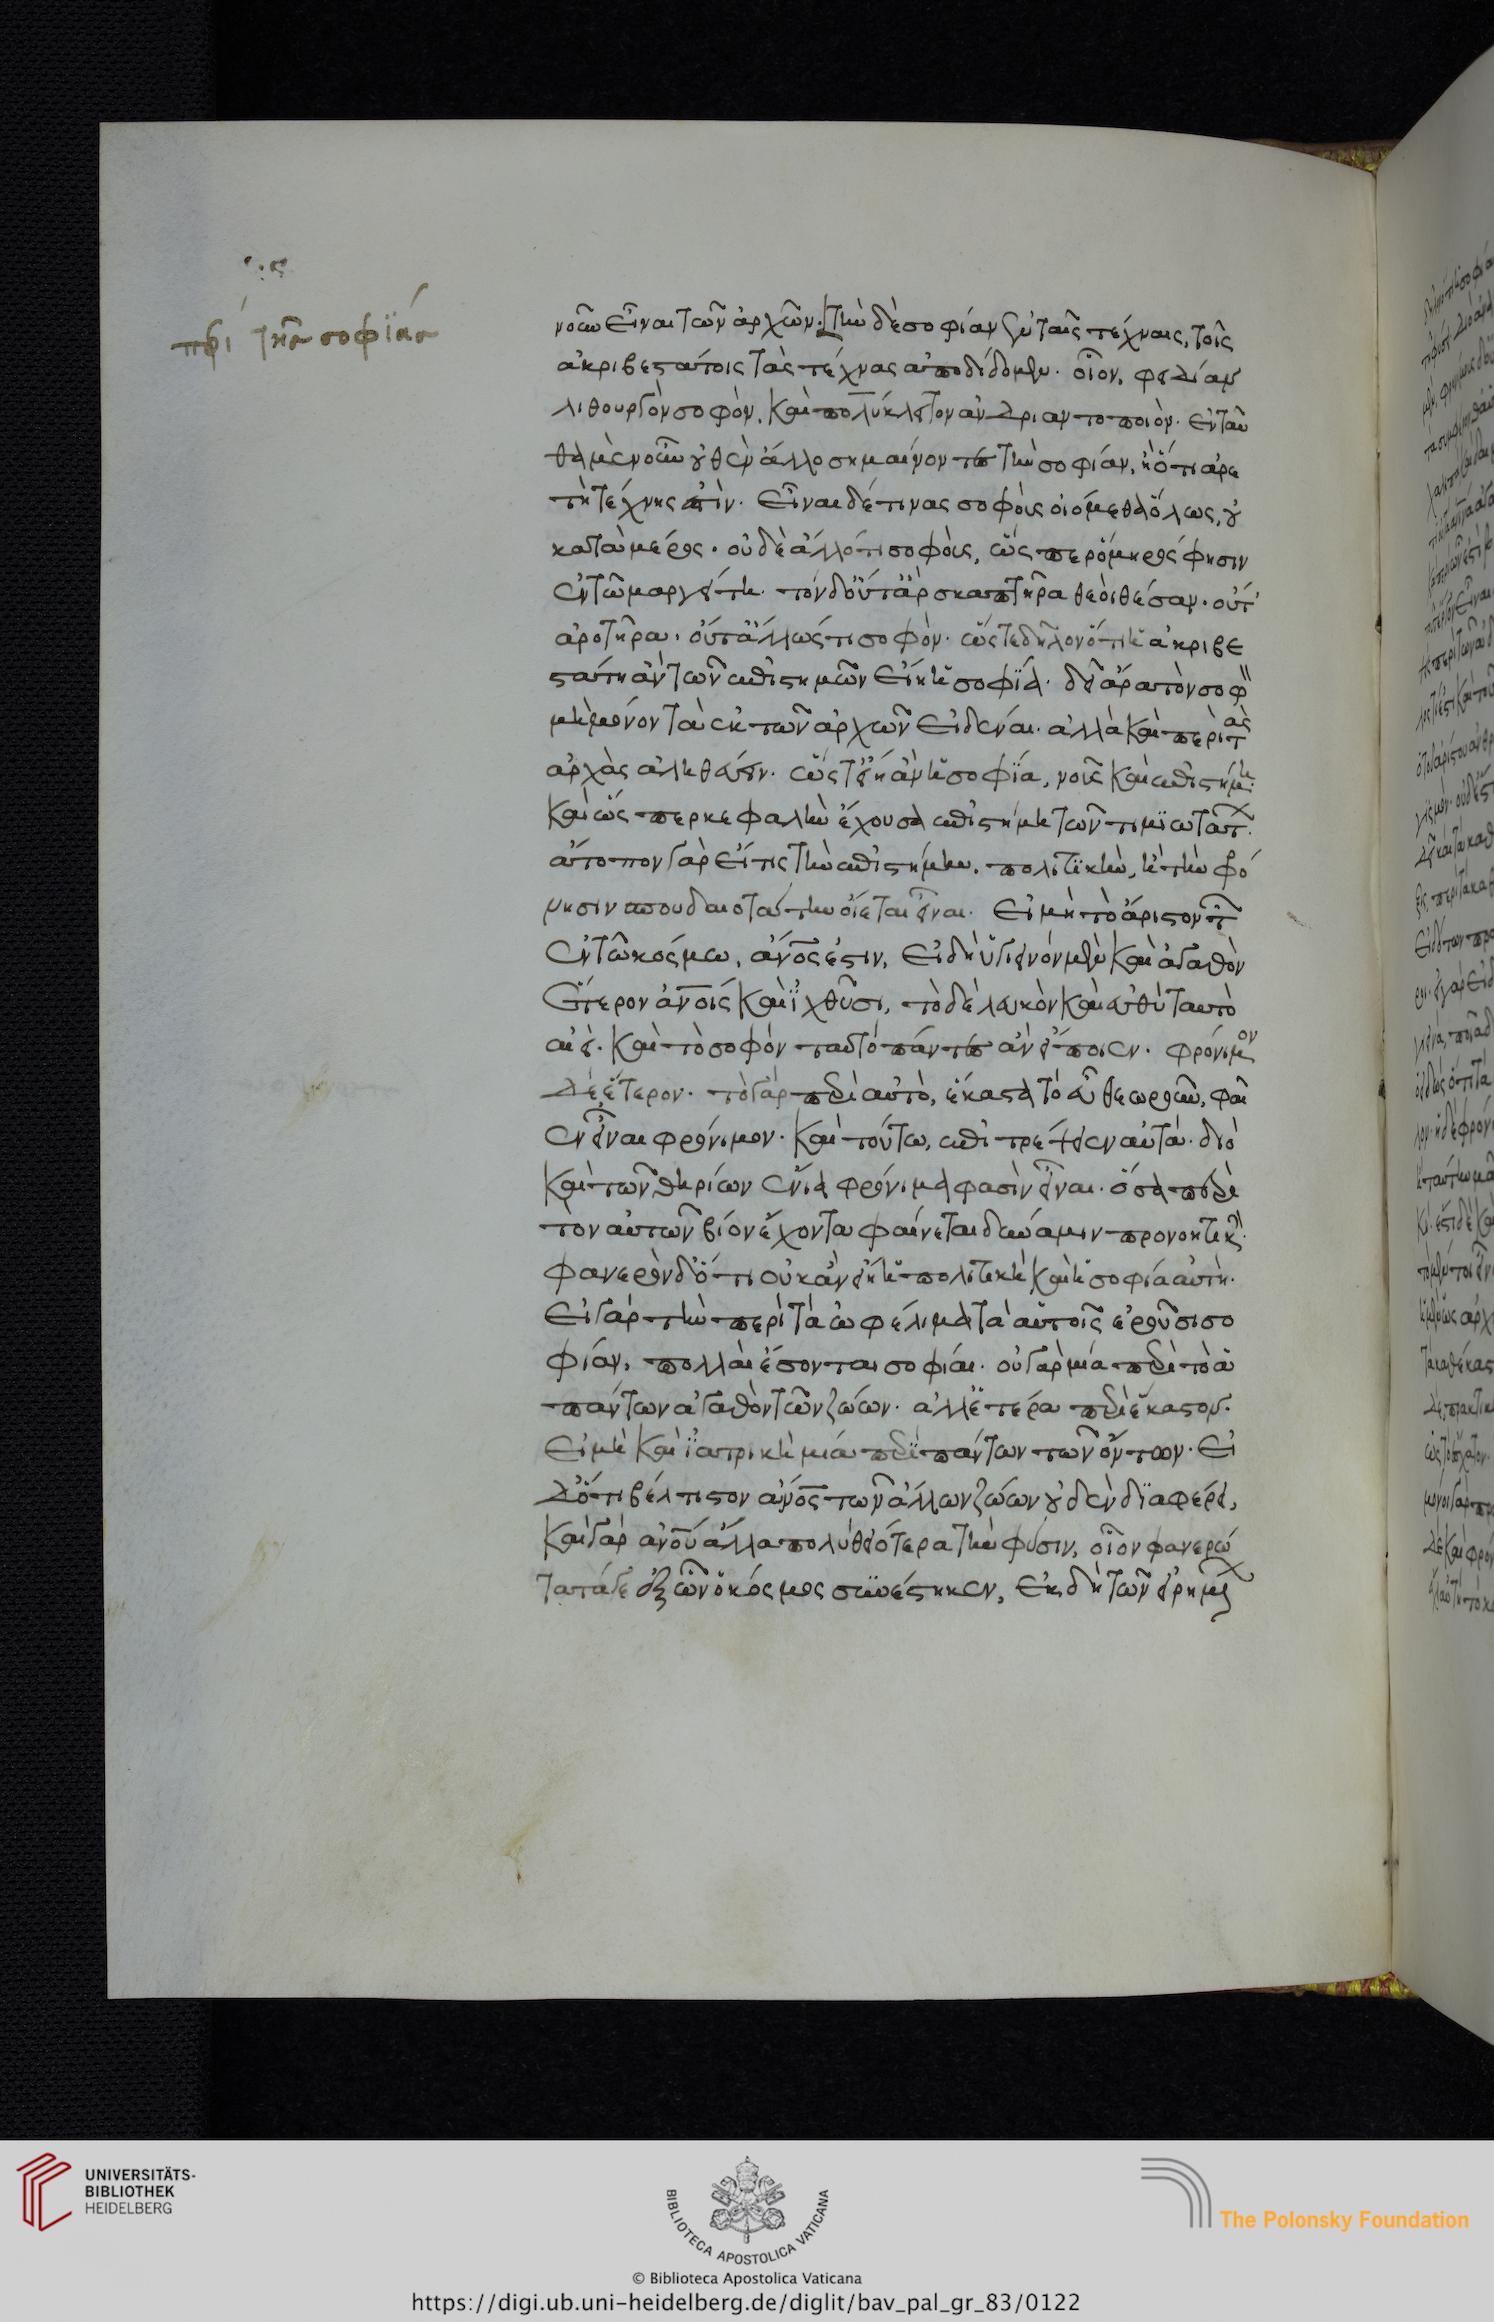 ϛ
περὶ τῆς σοφίας
νοῦν εἶναι τῶν ἀρχῶν. τὴν δὲ σοφίαν ἐν ταῖς τέχναις, τοῖς
ἀκριβεστάτοις τὰς τέχνας ἀποδίδομεν. οἷον, φειδίαν
λιθουργὸν σοφὸν, καὶ πολύκλειτον ἀνδριαντοποιόν. ἐνταῦ
θα μὲν οὖν οὐθὲν ἄλλο σημαίνοντες τὴν σοφίαν, ἢ ὅτι ἀρε
τὴ τέχνης ἐστίν. εἶναι δέ τινας σοφοὺς οἰόμεθα ὅλως, οὐ
κατὰ μέρος. οὐδὲ ἄλλό τι σοφοὺς, ὥς περ ὅμηρός φησιν
ἐν τῶ μαργείτη. τόνδ' οὔτ' ἂρ σκαπτῆρα θεοὶ θέσαν. οὔτ'
ἀροτῆρα. οὔτ' ἄλλως τι σοφόν. ὥστε δῆλον ὅτι ἡ ἀκριβε
στάτη ἂν τῶν ἐπιστημῶν εἴη ἡ σοφία. δεῖ ἄρα τὸν σοφὸν
μὴ μόνον τὰ ἐκ τῶν ἀρχῶν εἰδέναι. ἀλλὰ καὶ περὶ τὰς
ἀρχὰς ἀληθεύειν. ὥστ' εἴη ἂν ἡ σοφία, νοῦς καὶ ἐπιστήμη.
καὶ ὥς περ κεφαλὴν ἔχουσα ἐπιστήμη τῶν τιμιωτάτων.
ἄτοπον γὰρ εἴ τις τὴν ἐπιστήμην, πολιτικὴν, ἢ τὴν φρό
νησιν σπουδαιοτάτην οἴεται εἶναι. εἰ μὴ τὸ ἄριστον τῶν
ἐν τῶ κόσμω, ἄνος ἐστιν, εἰ δὴ ὑγιεινὸν μὲν καὶ ἀγαθὸν
ἕτερον ἀνοις καὶ ἰχθύσι, τὸ δὲ λευκὸν καὶ εὐθὺ ταυτὸ
αἰεί. καὶ τὸ σοφὸν ταυτὸ πάντες ἂν εἴποιεν. φρόνιμον
δὲ ἕτερον. τὸ γὰρ περὶ αὐτὸ, ἕκαστα τὸ εὖ θεωροῦν, φαῖ
εν εἶναι φρόνιμον. καὶ τούτω, ἐπιτρέψειεν αὐτά. διὸ
καὶ τῶν θηρίων ἔνια φρόνιμα φασὶν εἶναι. ὅσα περὶ
τον αὐτῶν βίον ἔχοντα φαίνεται δύναμιν προνοητικήν.
φανερὸν δ' ὅτι οὐκ ἂν εἴη ἡ πολιτικὴ καὶ ἡ σοφία αὐτή.
εἰ γὰρ τὴν περὶ τὰ ὠφέλιμα τὰ αὑτοῖς ἐροῦσι σο
φίαν, πολλαὶ ἔσονται σοφίαι. οὐ γὰρ μία περὶ τὸ ἁ
πάντων ἀγαθὸν τῶν ζώων. ἀλλ' ἑτέρα περὶ ἕκαστον.
εἰ μὴ καὶ ἰατρικὴ μία περὶ πάντων τῶν ὄντων. εἰ
δ' ὅτι βέλτιστον ἄνος τῶν ἄλλων ζώων οὐδὲν διαφέρει,
καὶ γὰρ ἀνου ἄλλα πολὺ θειότερα τὴν φύσιν, οἷον φανερώ
τατά γε ἐξ ὧν ὁ κόσμος συνέστηκεν, ἐκ δὴ τῶν εἰρημένων
UNIVERSITÄTS-
BIBLIOTHEK
HEIDELBERG
BIBLIOTECA APOSTOLICA VATICANA
The Polonsky Foundation
© Biblioteca Apostolica Vaticana
https://digi.ub.uni-heidelberg.de/diglit/bav_pal_gr_83/0122